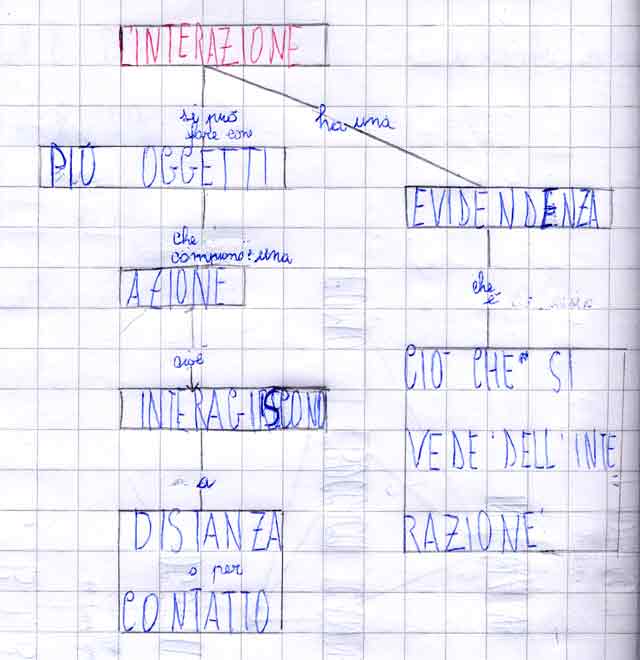 L'INTERAZIONE
si può
fare con
ha una
PIÙ OGGETTI
EVIDENDENZA
che
compiono una
AZIONE
che
è
cioè
CIÒ CHE SI
INTERAGIISCONO
VEDE DELL'INTE
a
DISTANZA
RAZIONE
o per
CONTATTO